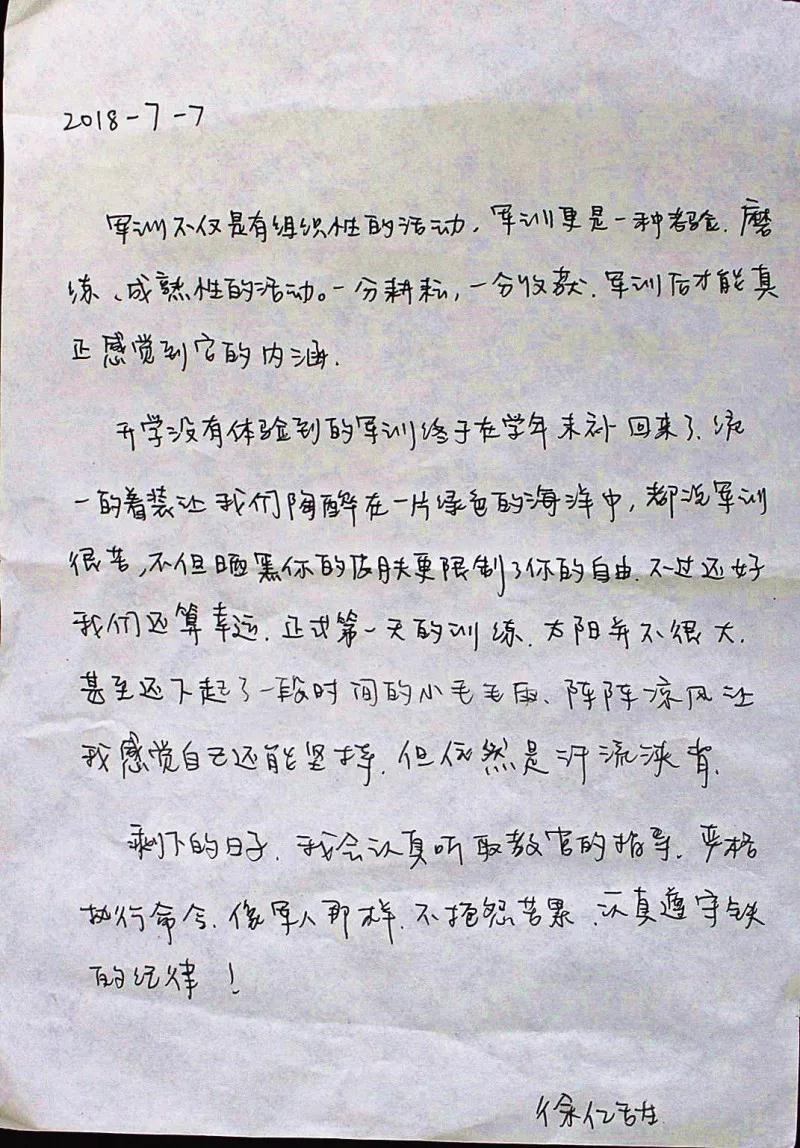 2018-7-7
军训不仅是有组织性的活动,军训更是一种考验.磨
练、成熟性的活动。一分耕耘,一分收获.军训后才能真
正感觉到它的内涵.
开学没有体验到的军训终于在学年末补回来了.统
一的着装让我们陶醉在一片绿色的海洋中,都说军训
很苦,不但晒黑你的皮肤更限制了你的自由.不过还好
我们还算幸运.正式第一天的训练.太阳并不很大.
甚至还下起了一段时间的小毛毛雨、阵阵凉风让
我感觉自己还能坚持.但依然是汗流浃背.
剩下的日子.我会认真听取教官的指导.严格
执行命令.像军人那样.不抱怨苦累.认真遵守铁
的纪律!
徐亿